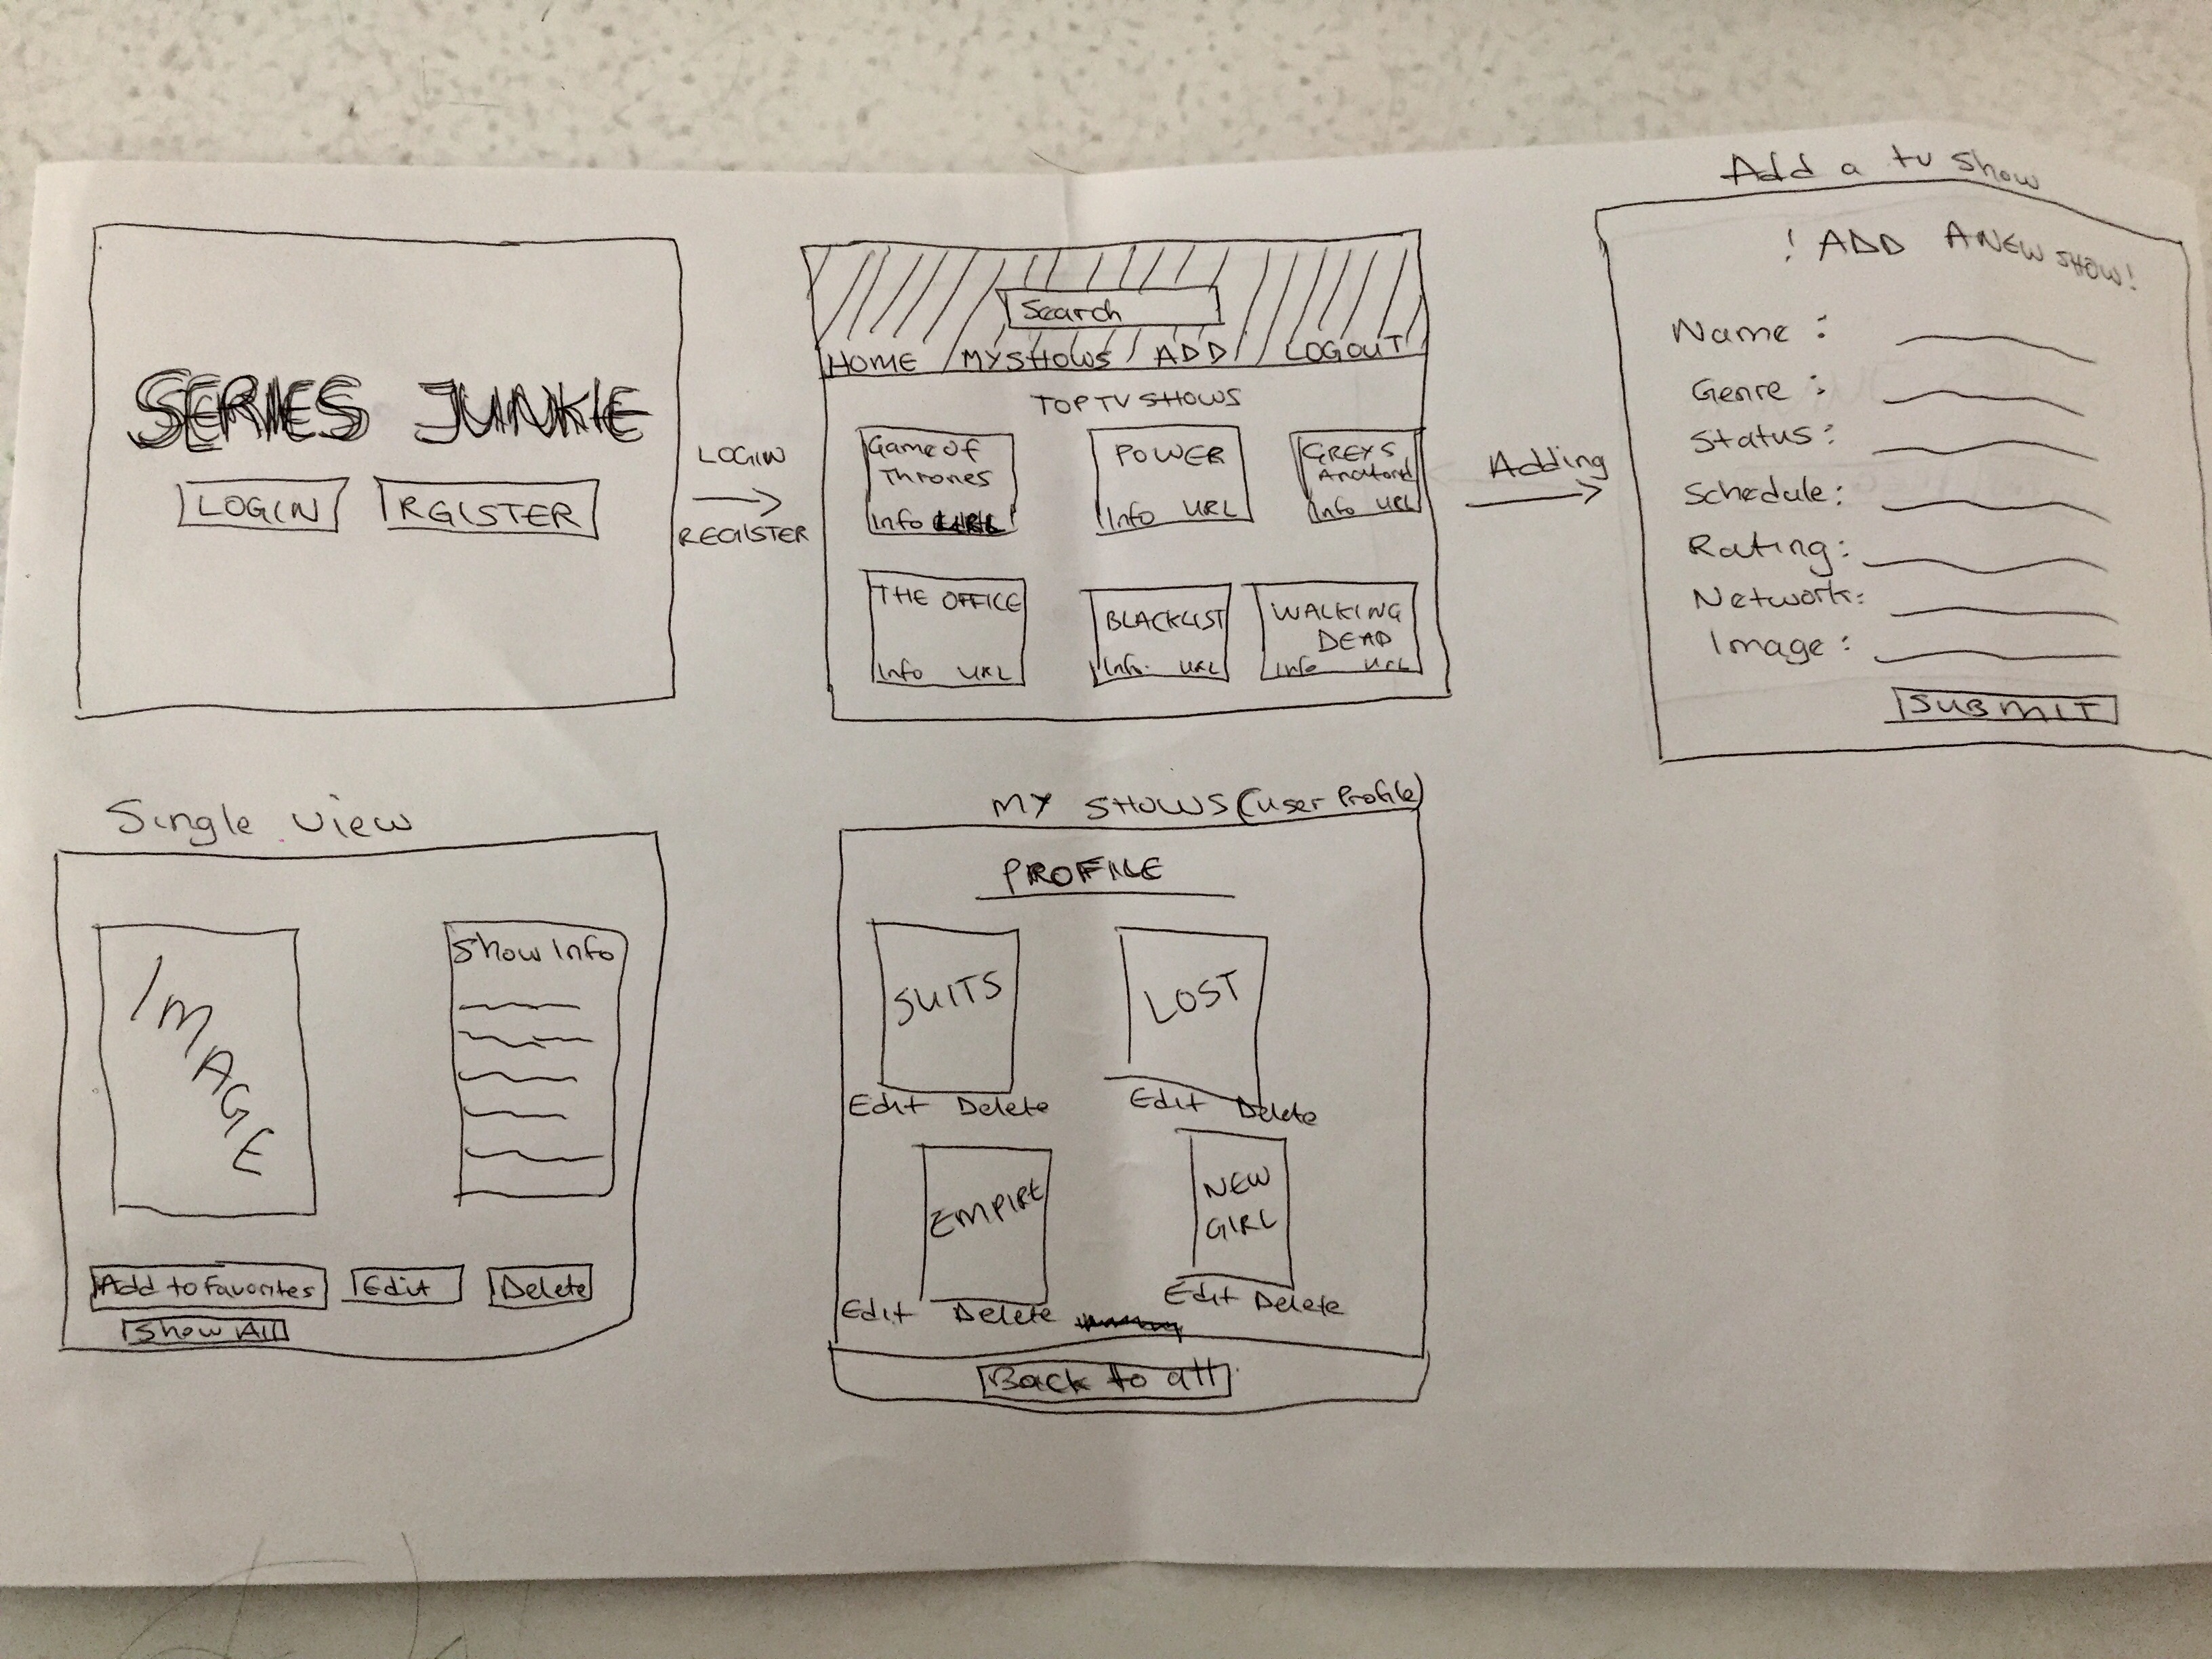 SERIES JUNKIE
LOGIN RGISTER
LOGIN
REGISTER
Search
HOME MYSHOWS ADD LOGOUT
TOP TV SHOWS
Game of
Thrones
Info URL
POWER
Info URL
GREYS
Info URL
THE OFFICE
Info URL
BLACKLIST
Info URL
WALKING
DEAD
Info URL
Adding
Add a tv show
! ADD A NEW SHOW!
Name :
Genre :
Status :
Schedule :
Rating :
Network :
Image :
SUBMIT
Single view
IMAGE
Show Info
Add to favorites Edit Delete
Show All
MY SHOWS (user Profile)
PROFILE
SUITS
Edit Delete
LOST
Edit Delete
EMPIRE
Edit Delete
NEW
GIRL
Edit Delete
Back to all